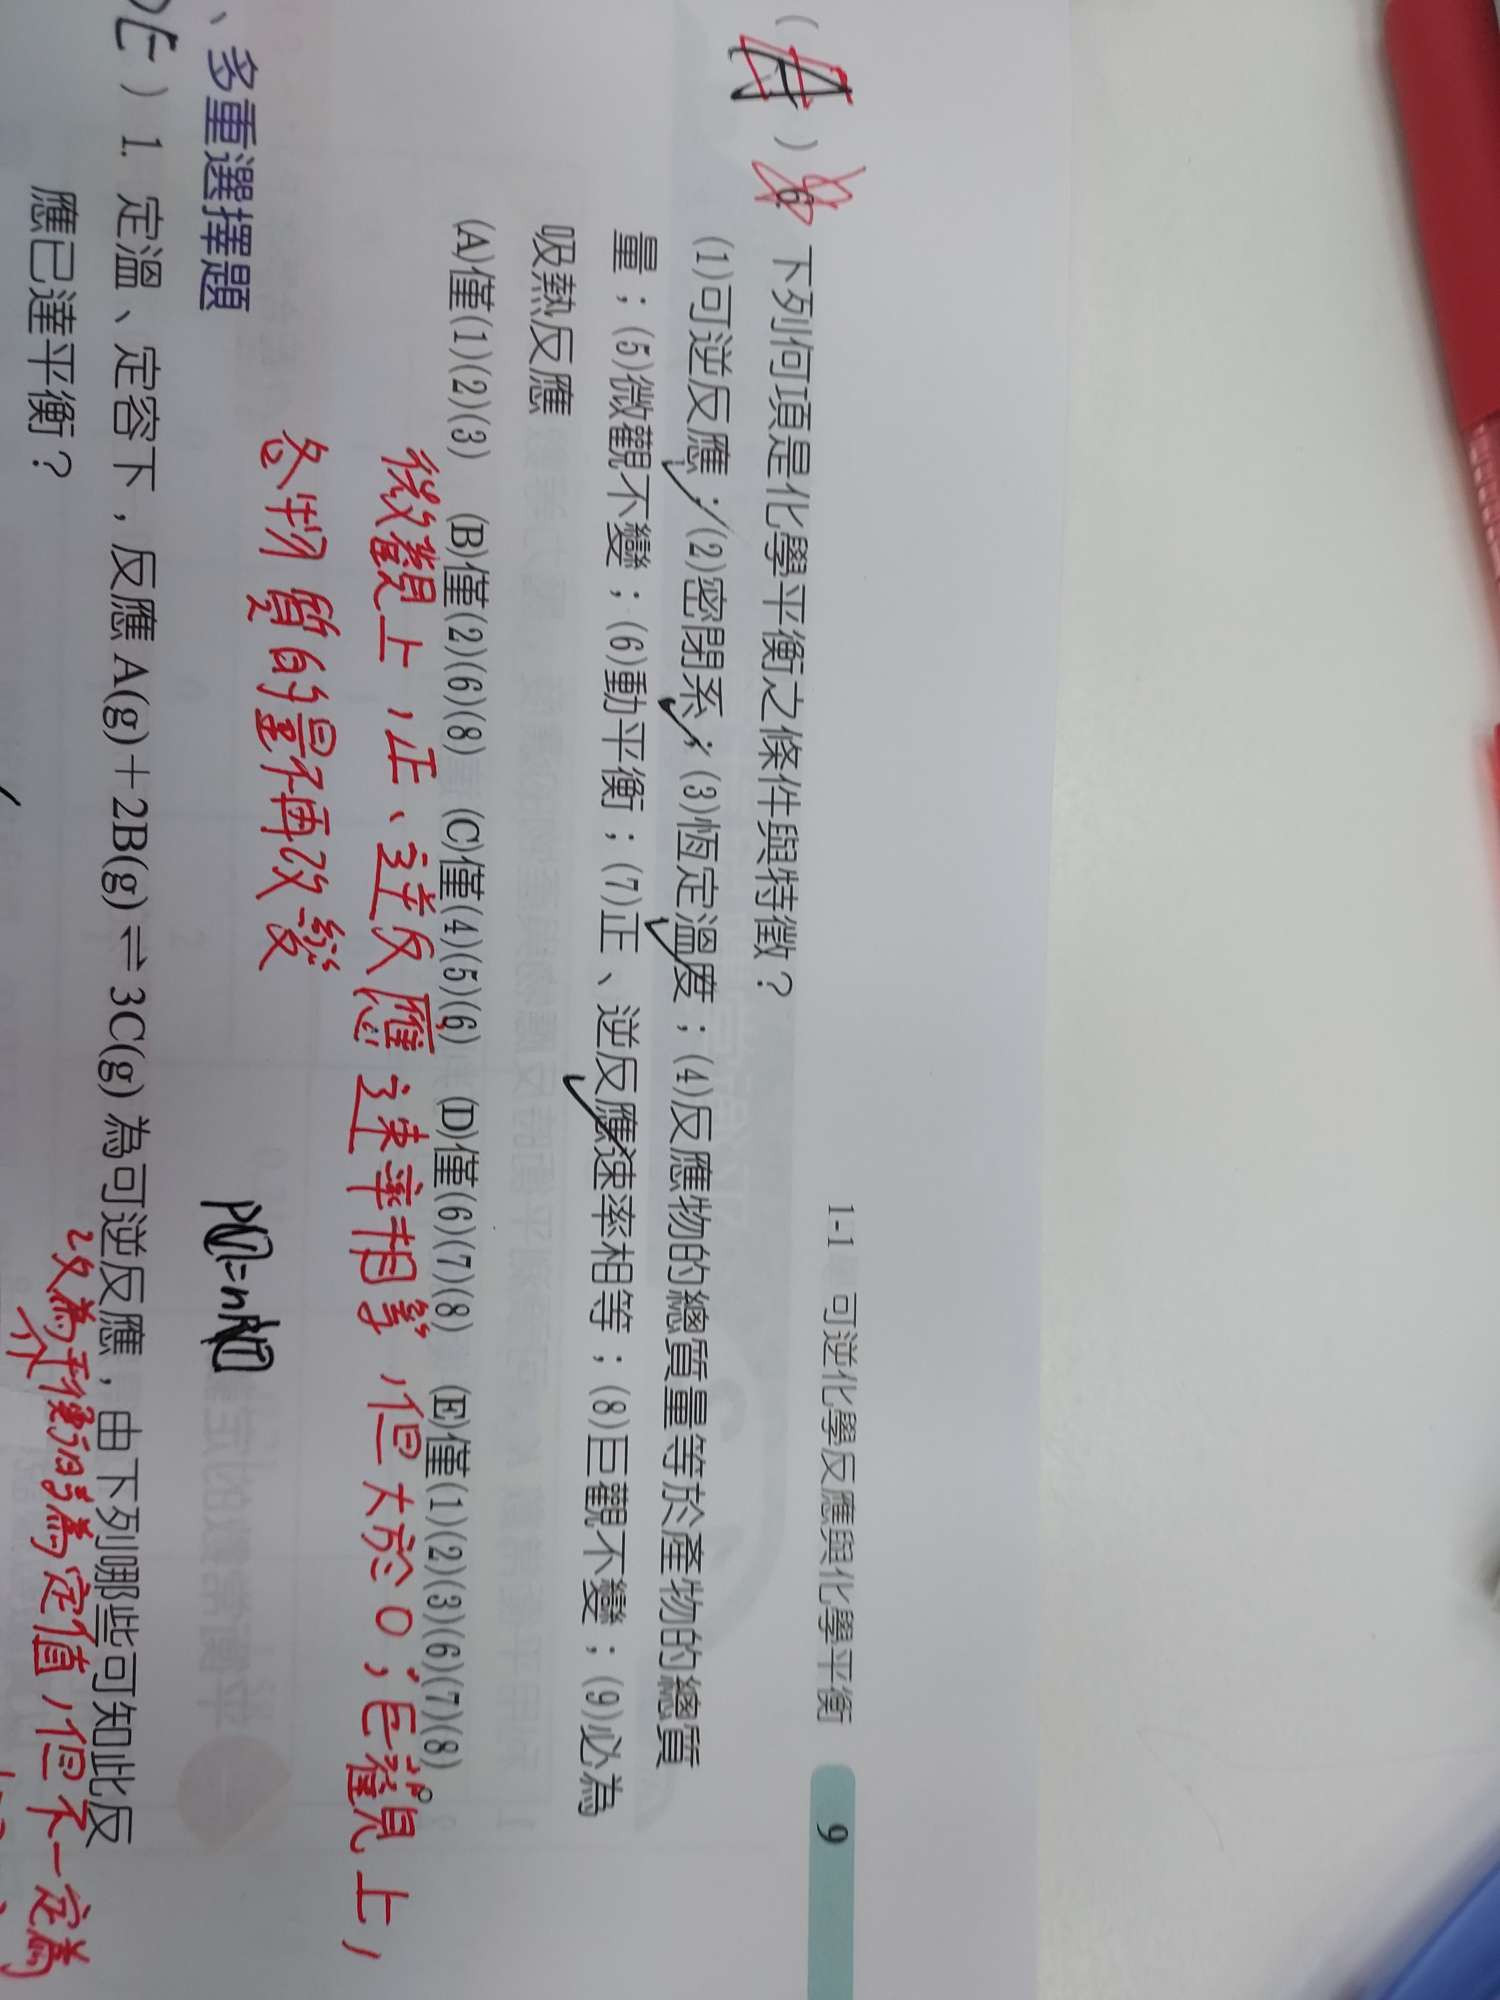 1-1 可逆化學反應與化學平衡 9
(A) 6. 下列何項是化學平衡之條件與特徵？
(1)可逆反應；(2)密閉系；(3)恆定溫度；(4)反應物的總質量等於產物的總質
量；(5)微觀不變；(6)動平衡；(7)正、逆反應速率相等；(8)巨觀不變；(9)必為
吸熱反應
(A)僅(1)(2)(3) (B)僅(2)(6)(8) (C)僅(4)(5)(6) (D)僅(6)(7)(8) (E)僅(1)(2)(3)(6)(7)(8)
微觀上，正、逆反應速率相等，但大於0；巨觀上，
各物質的量不再改變
、多重選擇題
PV=nRT
DE ) 1. 定溫、定容下，反應 A(g)＋2B(g)⇌3C(g) 為可逆反應，由下列哪些可知此反
應已達平衡？
改為平衡時為定值，但不一定為